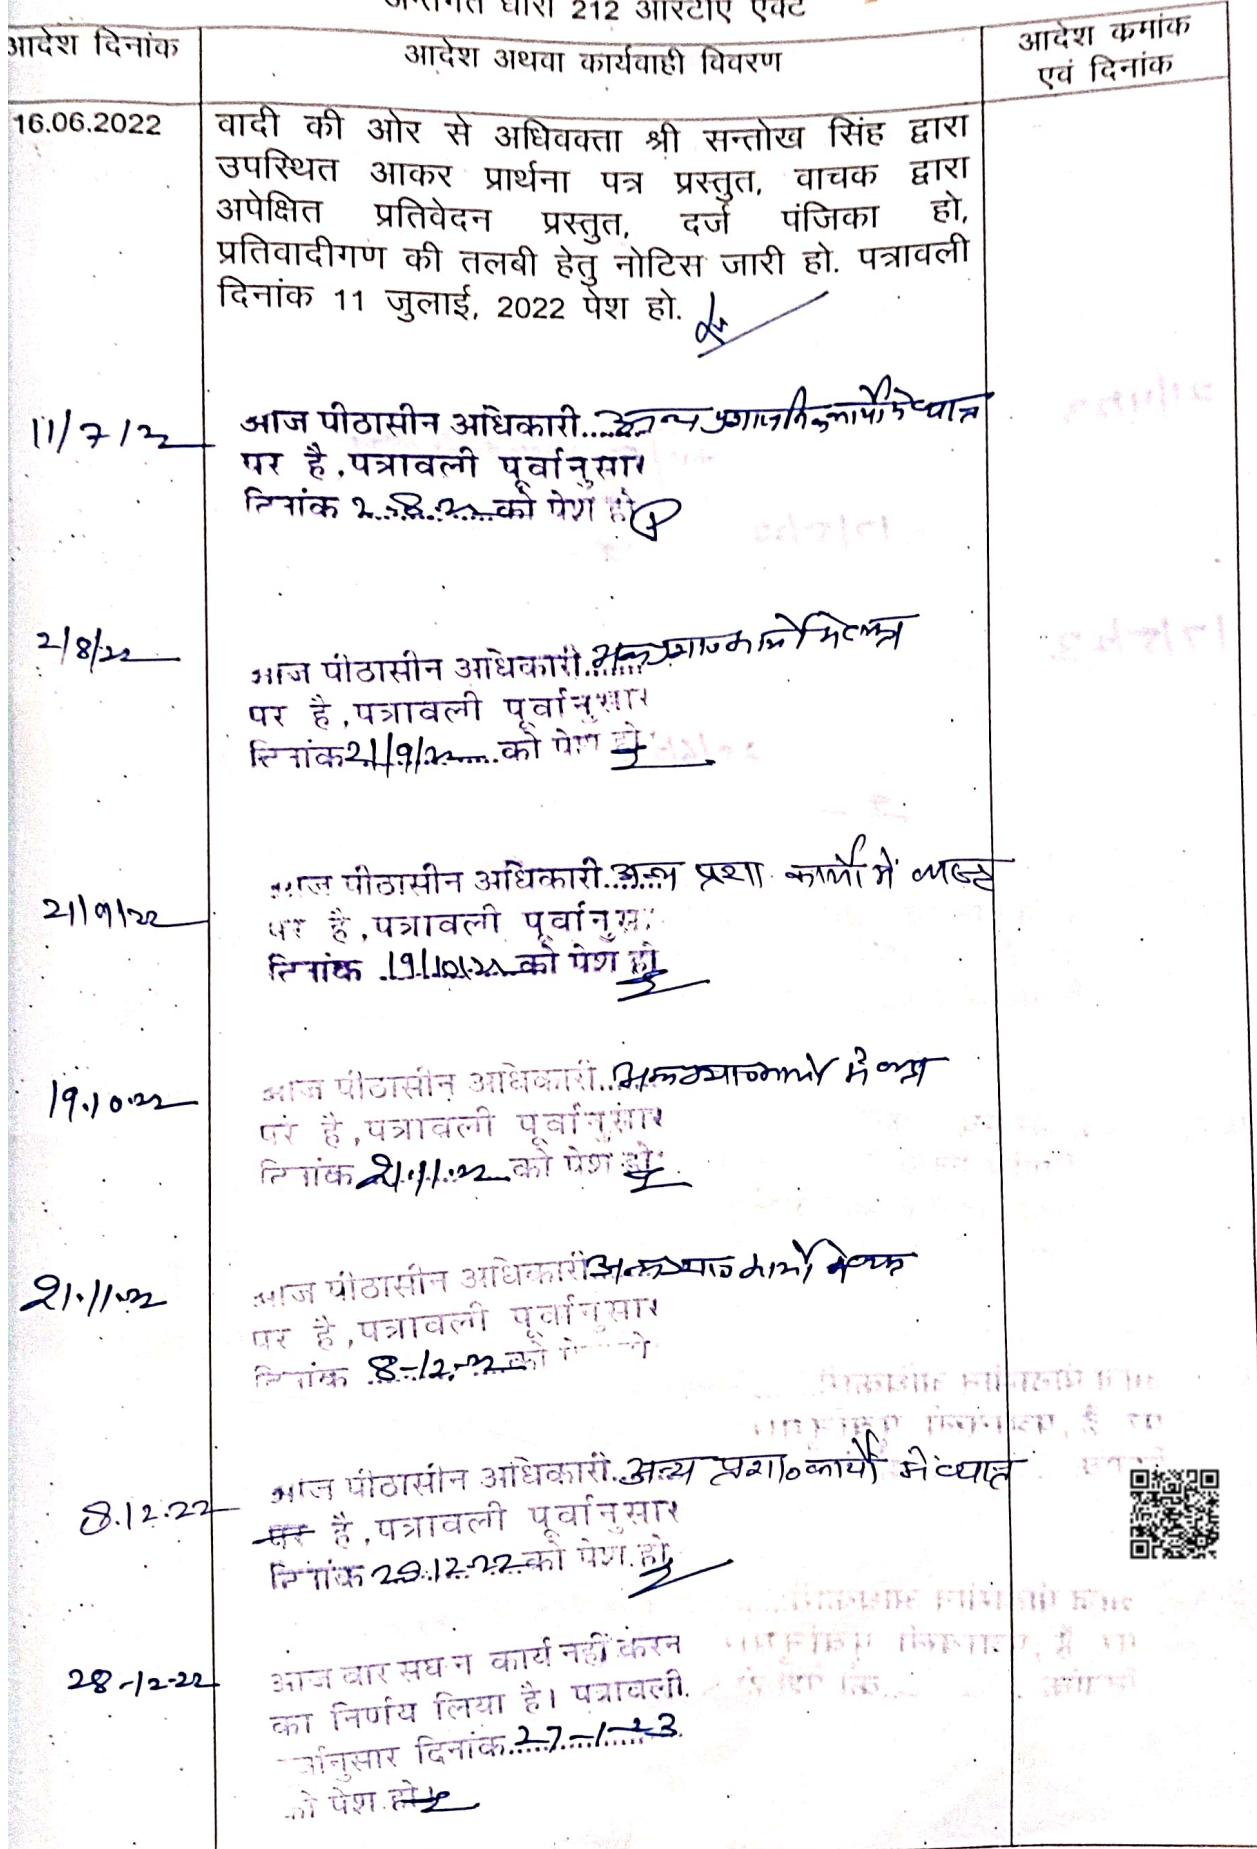 अन्तर्गत धारा 212 आरटीए एक्ट
आदेश दिनांक
आदेश अथवा कार्यवाही विवरण
आदेश कमांक
एवं दिनांक
16.06.2022
वादी की ओर से अधिवक्ता श्री सन्तोख सिंह द्वारा
उपस्थित आकर प्रार्थना पत्र प्रस्तुत, वाचक द्वारा
अपेक्षित प्रतिवेदन प्रस्तुत, दर्ज पंजिका हो,
प्रतिवादीगण की तलबी हेतु नोटिस जारी हो. पत्रावली
दिनांक 11 जुलाई, 2022 पेश हो.
11/7/22
आज पीठासीन अधिकारी....अन्य
पर है, पत्रावली पूर्वानुसार
दिनांक 2.8.22 को पेश हो
2/8/22
आज पीठासीन अधिकारी
पर है, पत्रावली पूर्वानुसार
दिनांक 21/9/22 को पेश हो
21/9/22
आज पीठासीन अधिकारी...अन्य प्रशा. कार्यों में व्यस्त
पर है, पत्रावली पूर्वानुसार
दिनांक 19/10/22 को पेश हो
19.10.22
आज पीठासीन अधिकारी
पर है, पत्रावली पूर्वानुसार
दिनांक 21.11.22 को पेश हो
21.11.22
आज पीठासीन अधिकारी
पर है, पत्रावली पूर्वानुसार
दिनांक 8-12-22 को
8.12.22
आज पीठासीन अधिकारी..अन्य प्रशा० कार्यों में
पर है, पत्रावली पूर्वानुसार
दिनांक 28.12.22 को पेश हो
28-12-22
आज बार संघ न कार्य नहीं करन
का निर्णय लिया है। पत्रावली
र्वानुसार दिनांक 27-1-23
को पेश हो